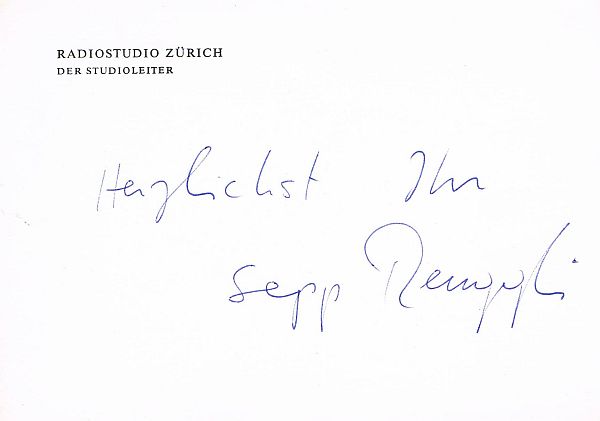 RADIOSTUDIO ZÜRICH
DER STUDIOLEITER
Herzlichst Ihr
Sepp Renggli